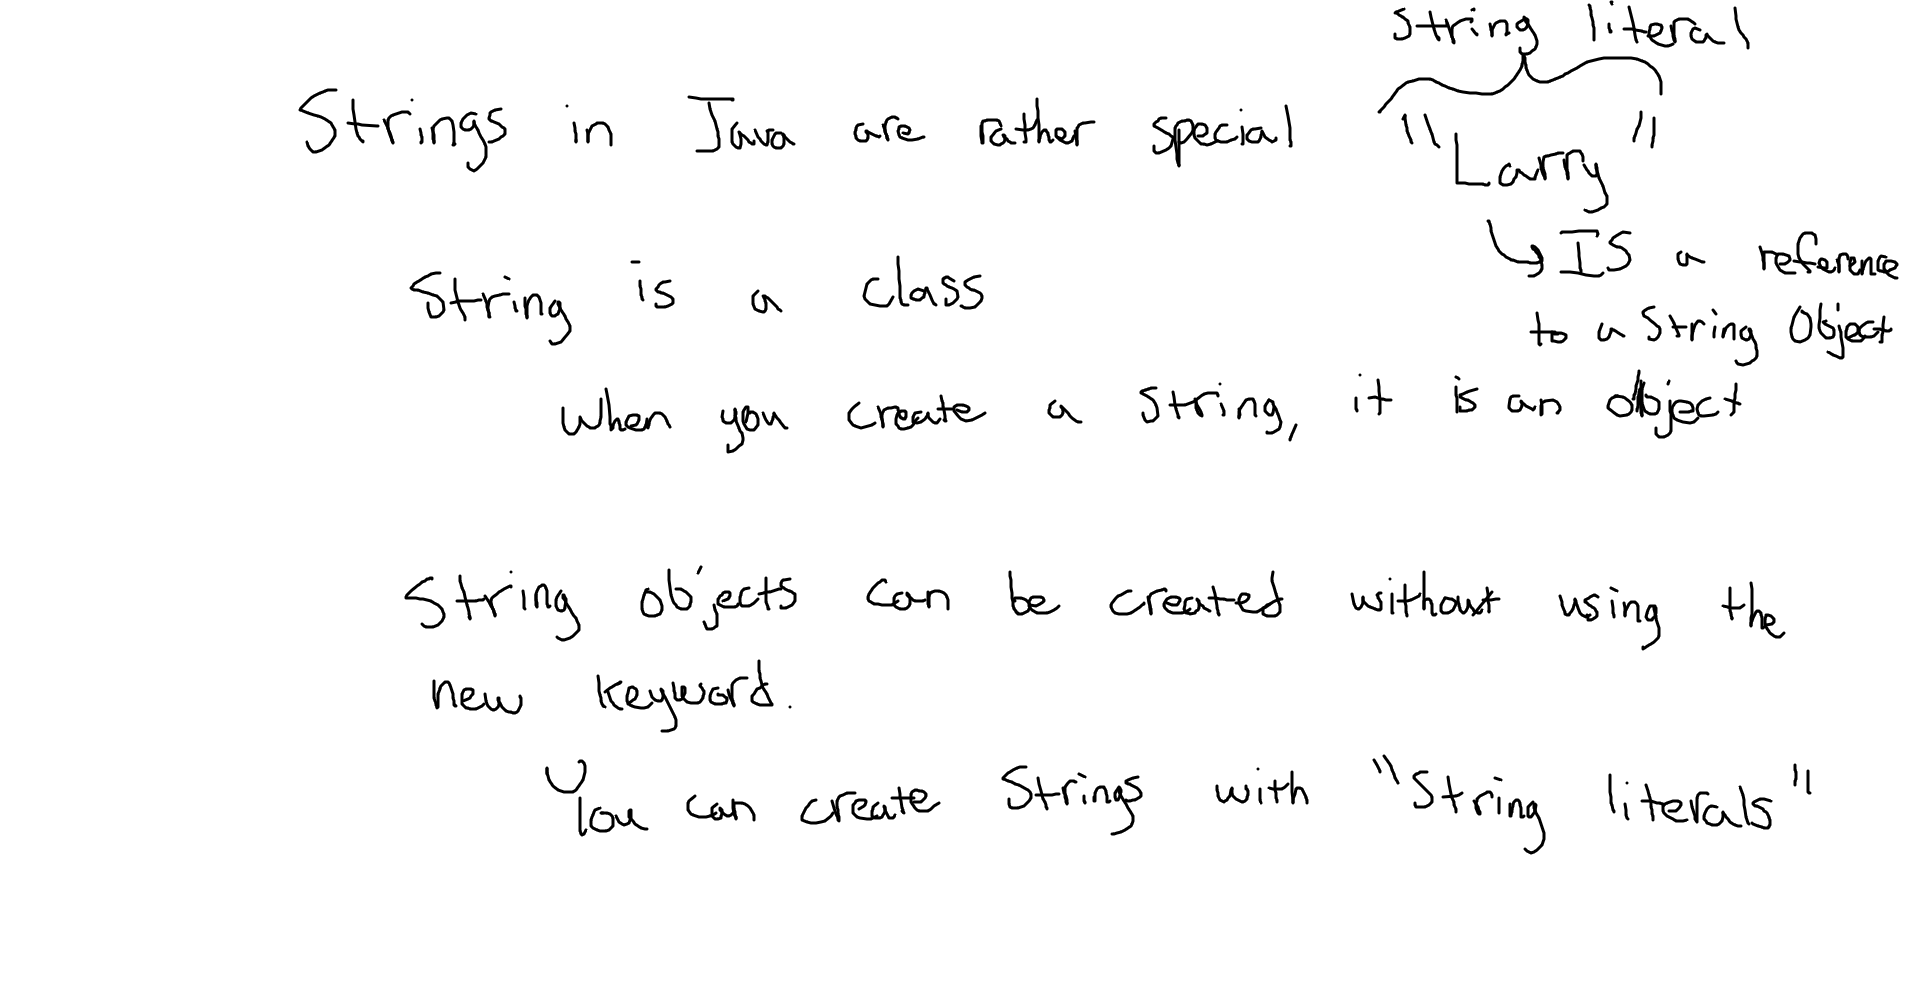 string literal
Strings in Java are rather special "Larry"
IS a reference
String is a class
to a String Object
When you create a string, it is an object
String objects can be created without using the
new keyword.
You can create Strings with "String literals"